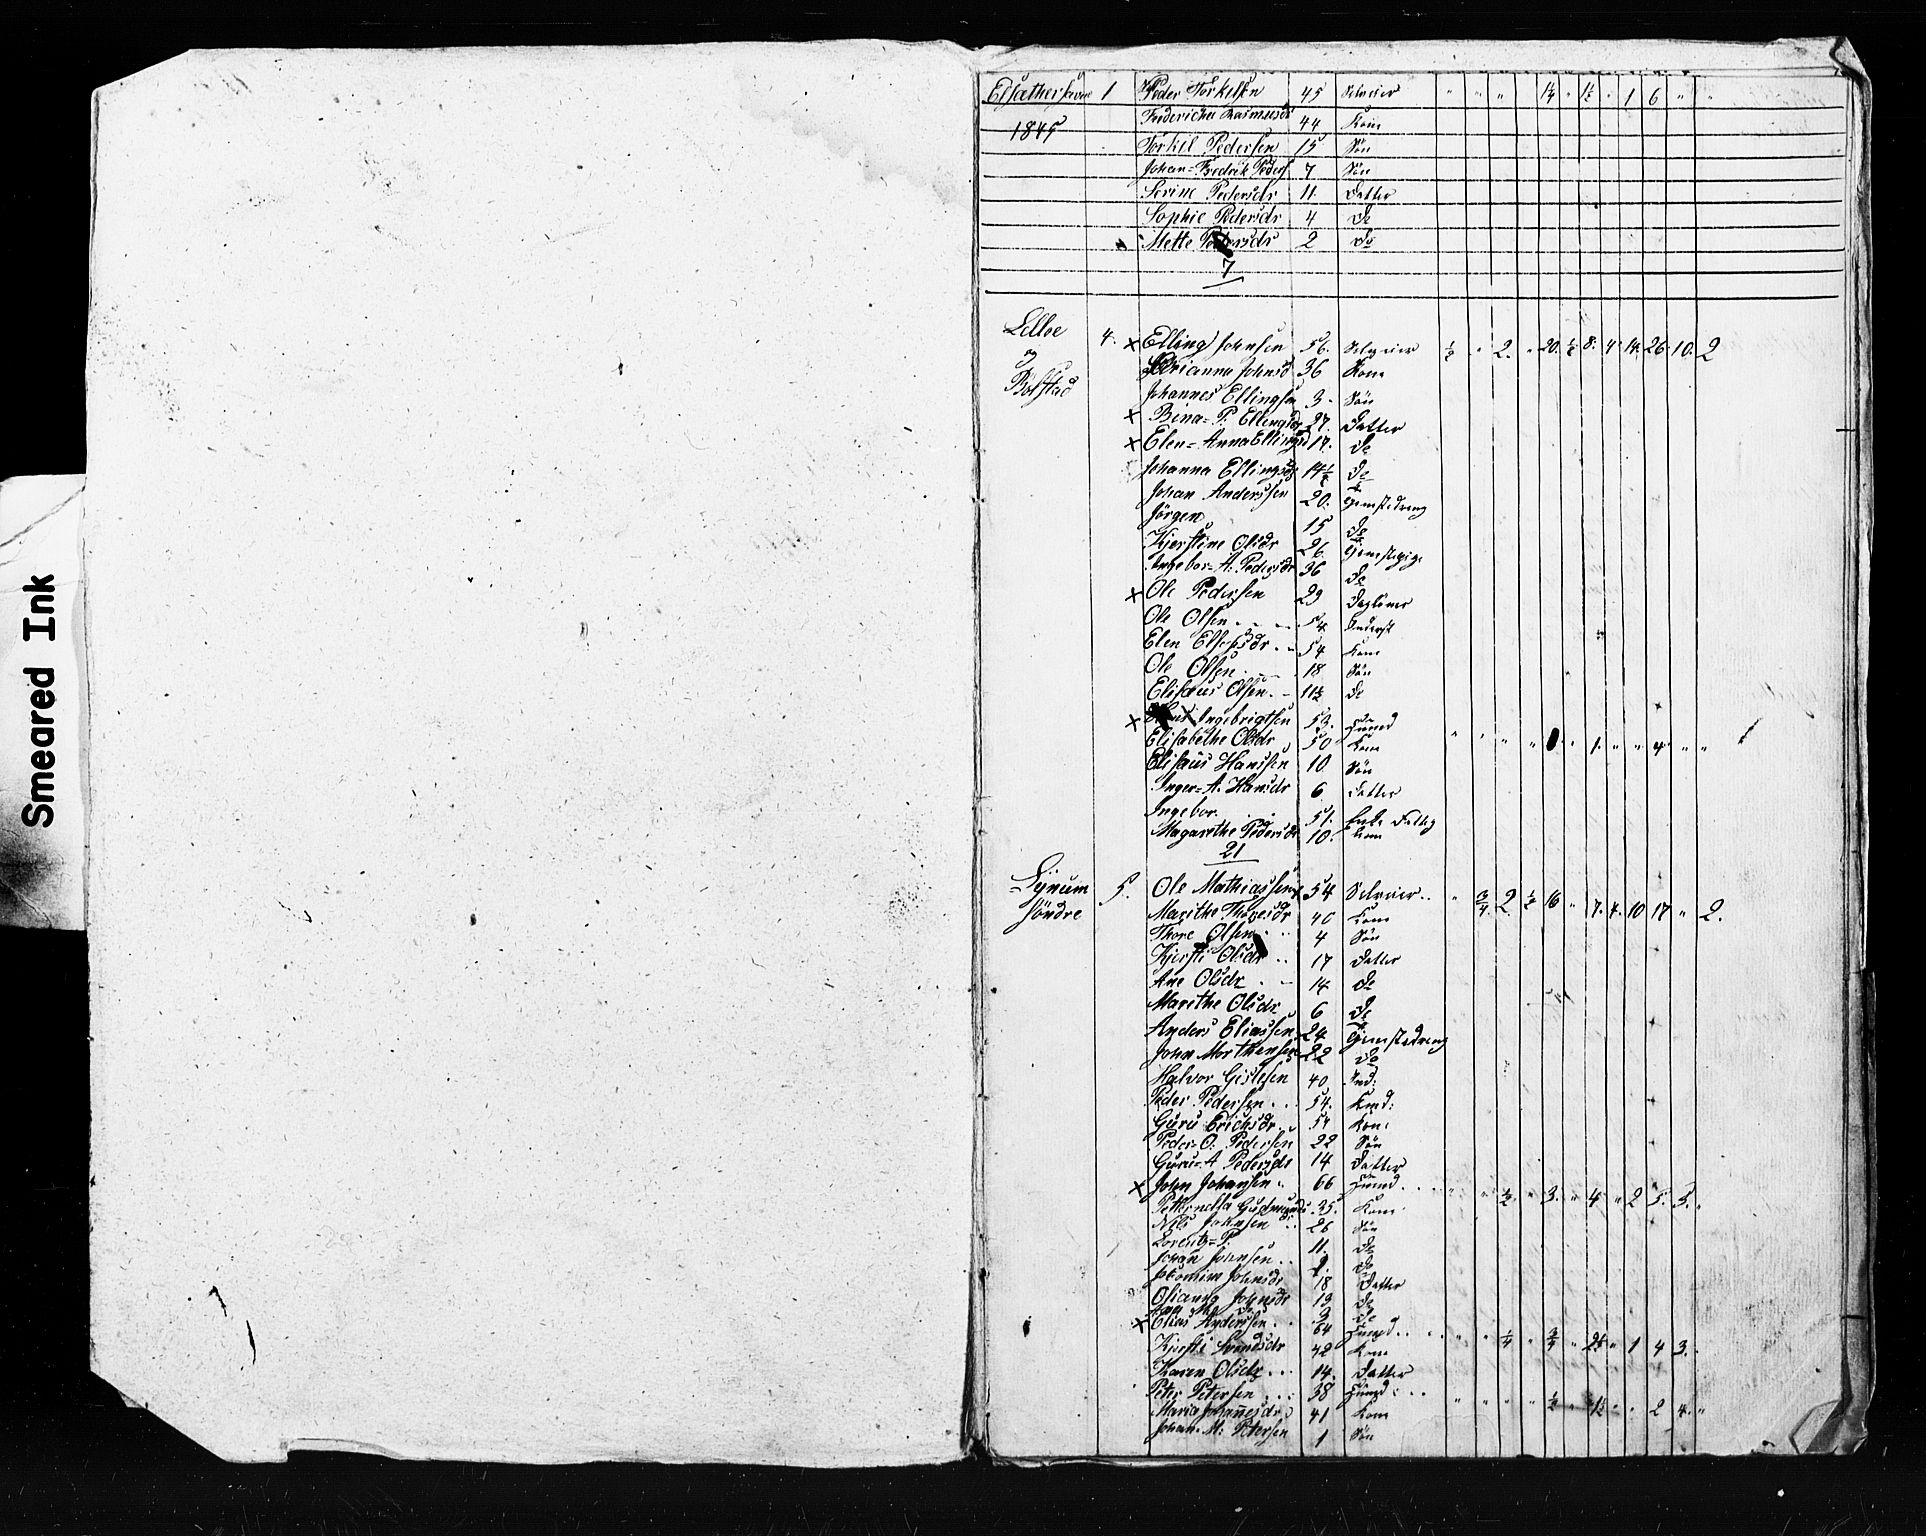 Smeared Ink
1 Peder Torkelsen 45 Selveier " " " 1¼ " 1½ " 1 6 " "
1845 44 Kone
Torkel Pedersen 15 Søn
Johan=Fredrik Peders 7 Søn
Serine Pedersdr 11 Datter
Sophie Pedersdr 4 Do
Mette Pedersdr 2 Do
7
4. × Elling Johnsen 56. Selveier ½ " 2. " 20. ½ 8. 4 14. 26. 10. 2
Johnsd 36 Kone
Bölstad Johannes Ellingsen 3 Søn
× Bina=P. Ellingsdr 27. Datter
× Elen=Anna Ellingsd 17. Do
Johanna Ellingsdr 14½ Do
Johan Anderssen 20. Tjenstedreng
Jörgen 15 Do
Kjerstine Olsdr 26. Tjenstepige
Ingebor=A. Pedersdr 36 Do
× Ole Pedersen 29 Daglöner
Ole Olsen 54 Inderst
Elen 54 Kone
Ole Olsen 18 Søn
Elisæus Olsen 11½ Do
× Ingebrigtsen 53. Huusmd
Elisabethe Olsdr 50 Kone " " " " " 1. " " 4 " "
Elisæus Hanssen 10 Søn
Inger=A. Hansdr 6 Datter
Ingebor. 51.
Magarethe Pedersdr 10.
21
5. Ole Mathiassen 54 Selveier " ¾ 2 ½ 16 " 7. 4. 10 17 " 2.
Söndre Marithe 40 Kone
Thore Olsen 4 Søn
Kjersti Olsdr 17 Datter
Ane Olsdr 14 Do
Marithe Olsdr 6 Do
Anders Eliassen 24 Tjenstedreng
John Morthensen 22 Do
Halvor Gislesen 40 Ind:
Peder Pedersen 54.
Guru Erichsdr 51 Kone
Peder=O. Pedersen 22 Søn
Guru=A Pedersdr 14 Datter
× John Johansen 66 Huusmd " " ½ " 3. " 4 " 2 5. 3. "
35. Kone
Nils Johnsen 26 Søn
Lorents=P. 11. Do
Johan Johnsen Do
Johnsdr 18 Datter
Johnsdr 13 Do
3 Do
× Elias Anderssen 64 Huusmd " " ¼ " ¾ " 2½ " 1 4 3.
Kjersti 42 Kone
Karen Olsdr 14. Datter
Peter Petersen 38 Huusmd " " " " ½ " 1½ " " 2 4. "
Maria Johannesdr 41 Kone
Johan=M: Petersen 1 Søn